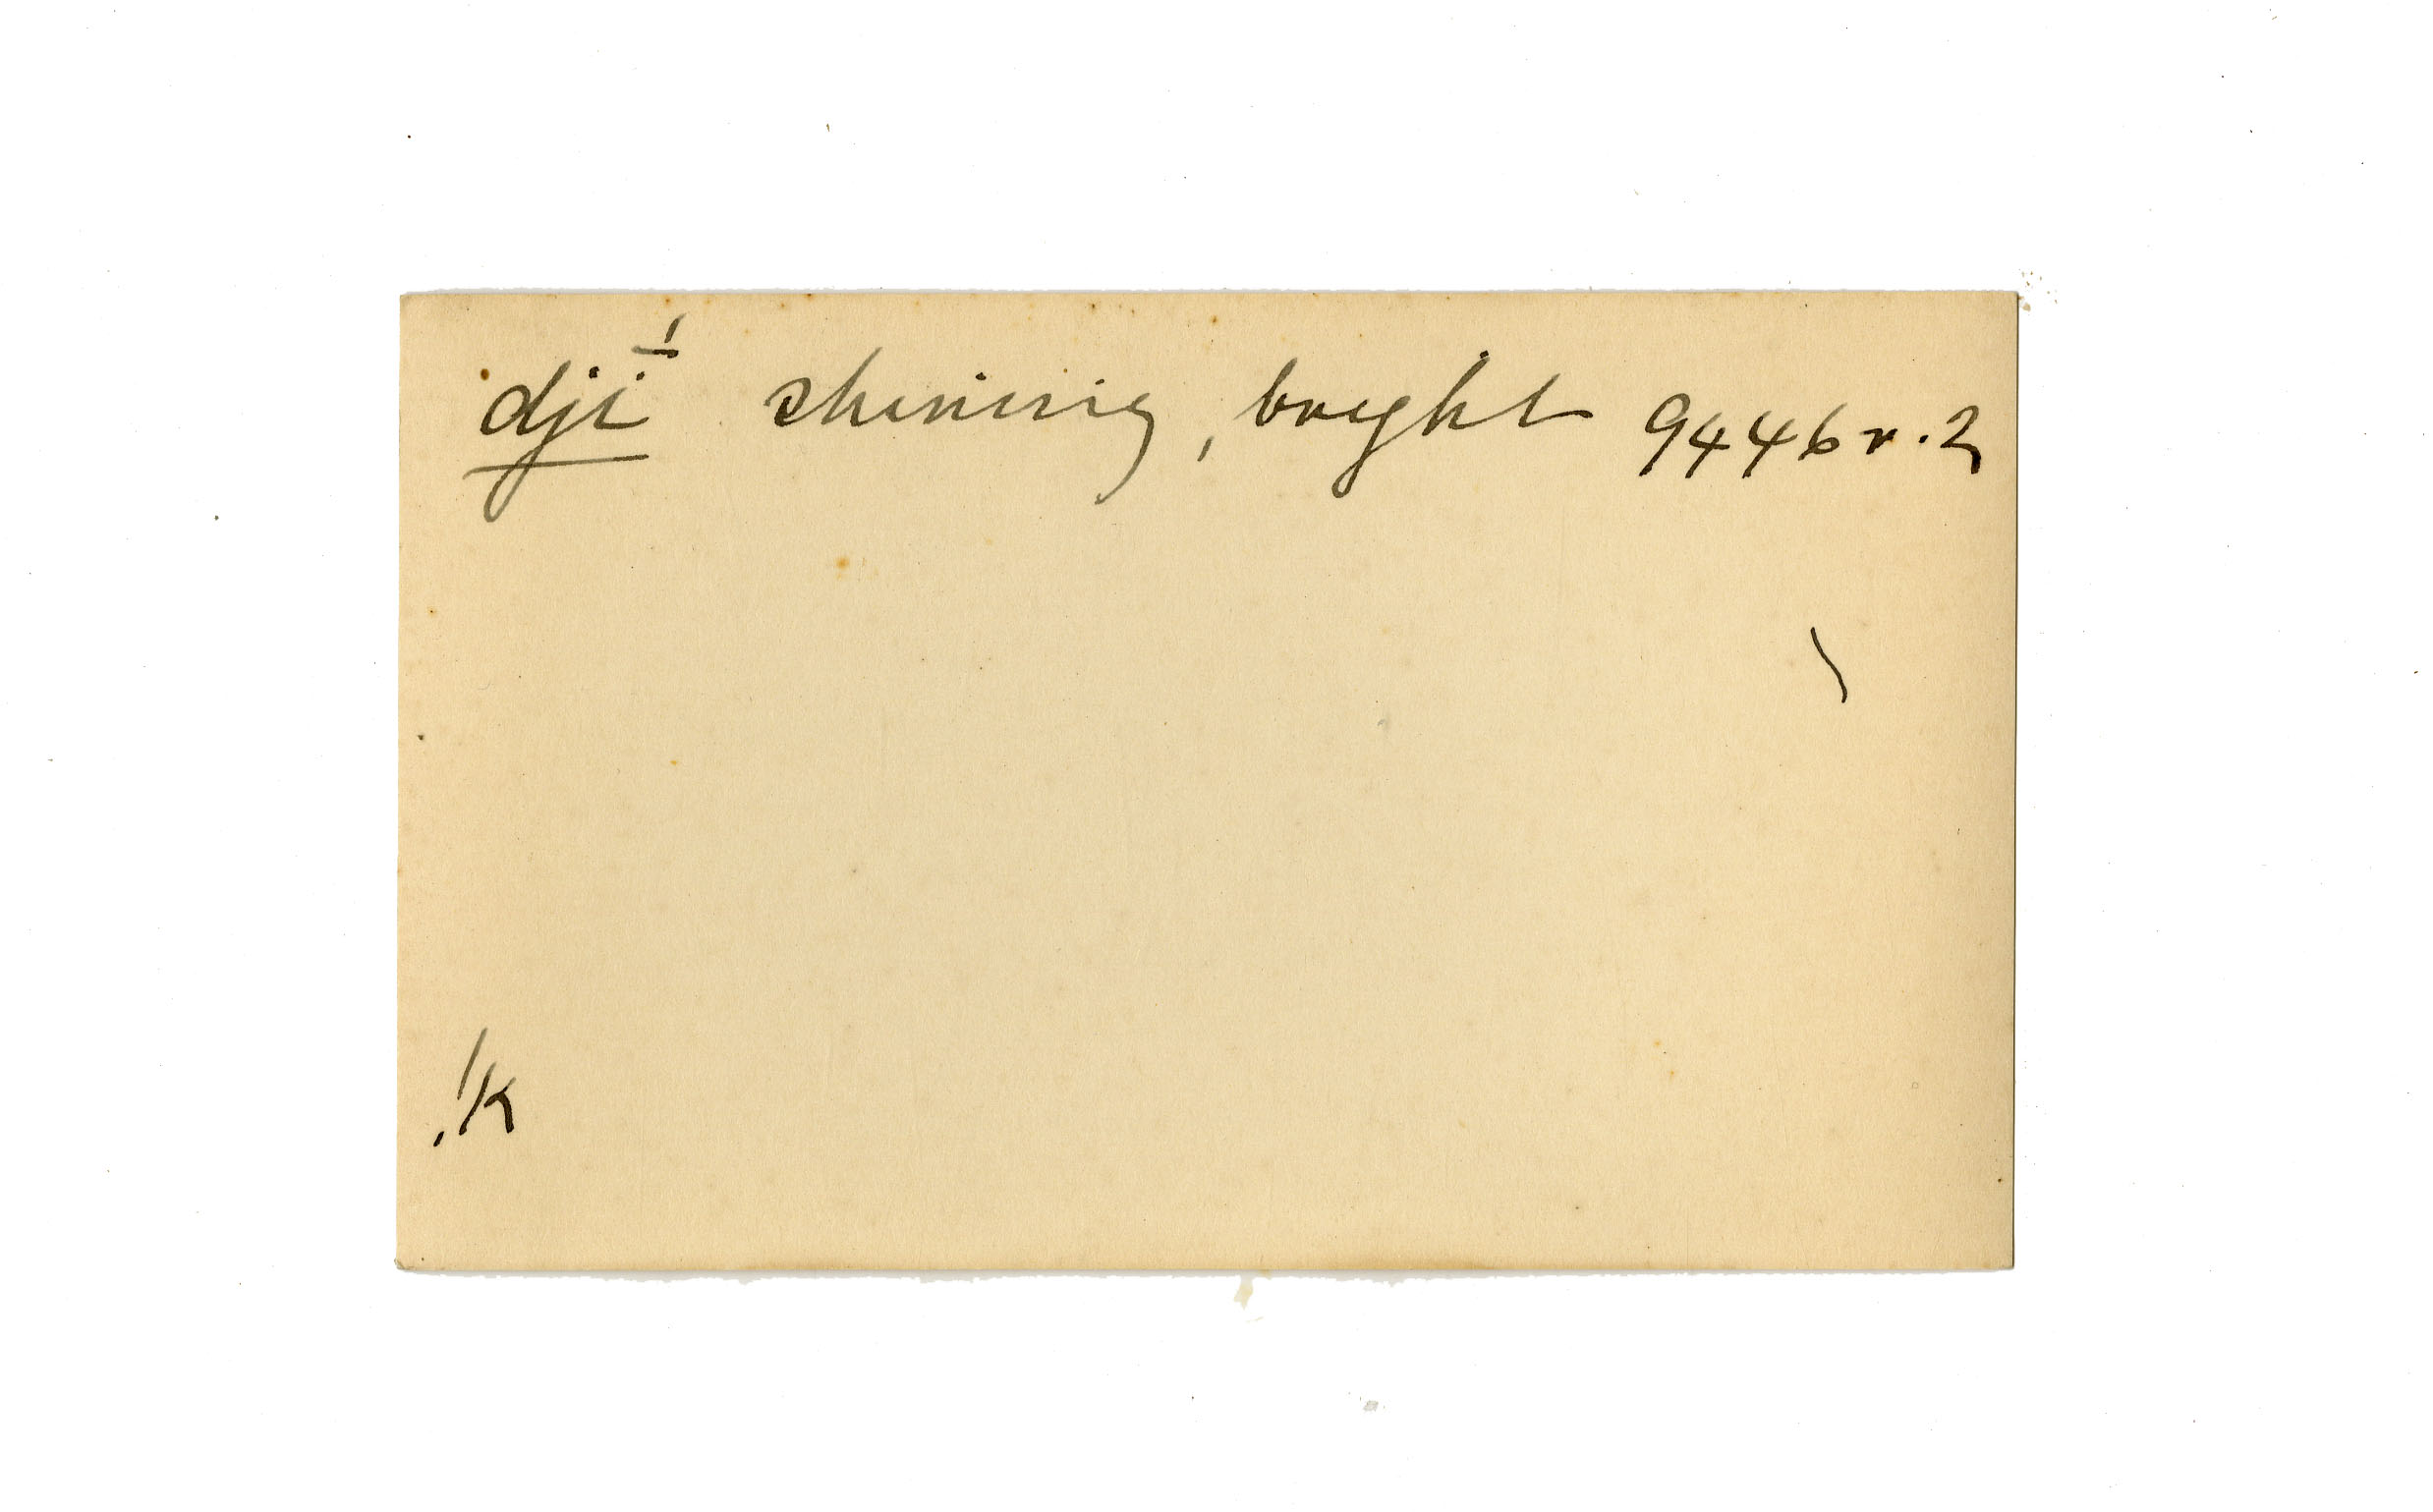 djī́ shining, bright 9446 r.2
\
!K